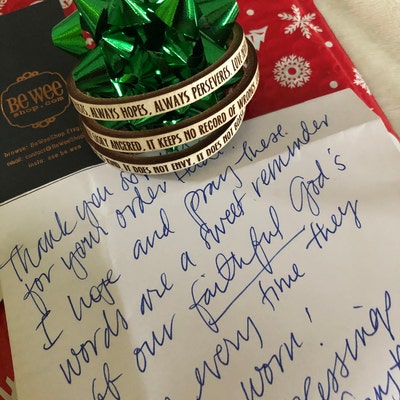 BE WEE
SHOP.COM
browse: BeWeeShop.Etsy
email: contact@BeWee
insta, use be wee
ALWAYS HOPES, ALWAYS PERSEVERES. LOVE
ANGERED, IT KEEPS NO RECORD OF WRONG
IT DOES NOT ENVY, IT DOES NOT
Thank you so
for your order these.
I hope and pray
words are a sweet reminder
of our faithful God's
every time they
worn!
blessings